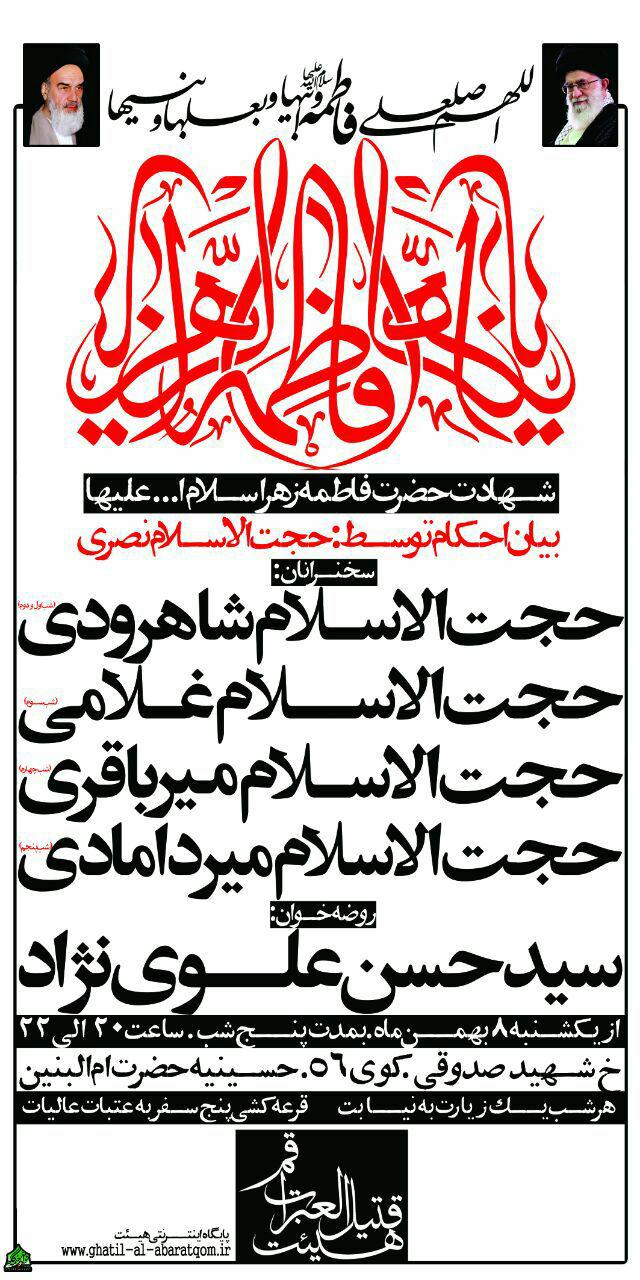 اللهم صل علی فاطمة و ابیها و بعلها و بنیها
سلام الله علیها
یا فاطمة الزهرا
شهادت حضرت فاطمه زهرا سلام ا... علیها
بیان احکام توسط: حجت الاسلام نصری
سخنرانان:
حجت الاسلام شاهرودی (شب اول و دوم)
حجت الاسلام غلامی (شب سوم)
حجت الاسلام میرباقری (شب چهارم)
حجت الاسلام میردامادی (شب پنجم)
روضه خوان:
سید حسن علوی نژاد
از یکشنبه ۸ بهمن ماه. بمدت پنج شب. ساعت ۲۰ الی ۲۲
خ شهید صدوقی. کوی ۵۶. حسینیه حضرت ام البنین
هر شب یک زیارت به نیابت قرعه کشی پنج سفر به عتبات عالیات
هیئت قتیل العبرات قم
پایگاه اینترنتی هیئت
www.ghatil-al-abaratqom.ir